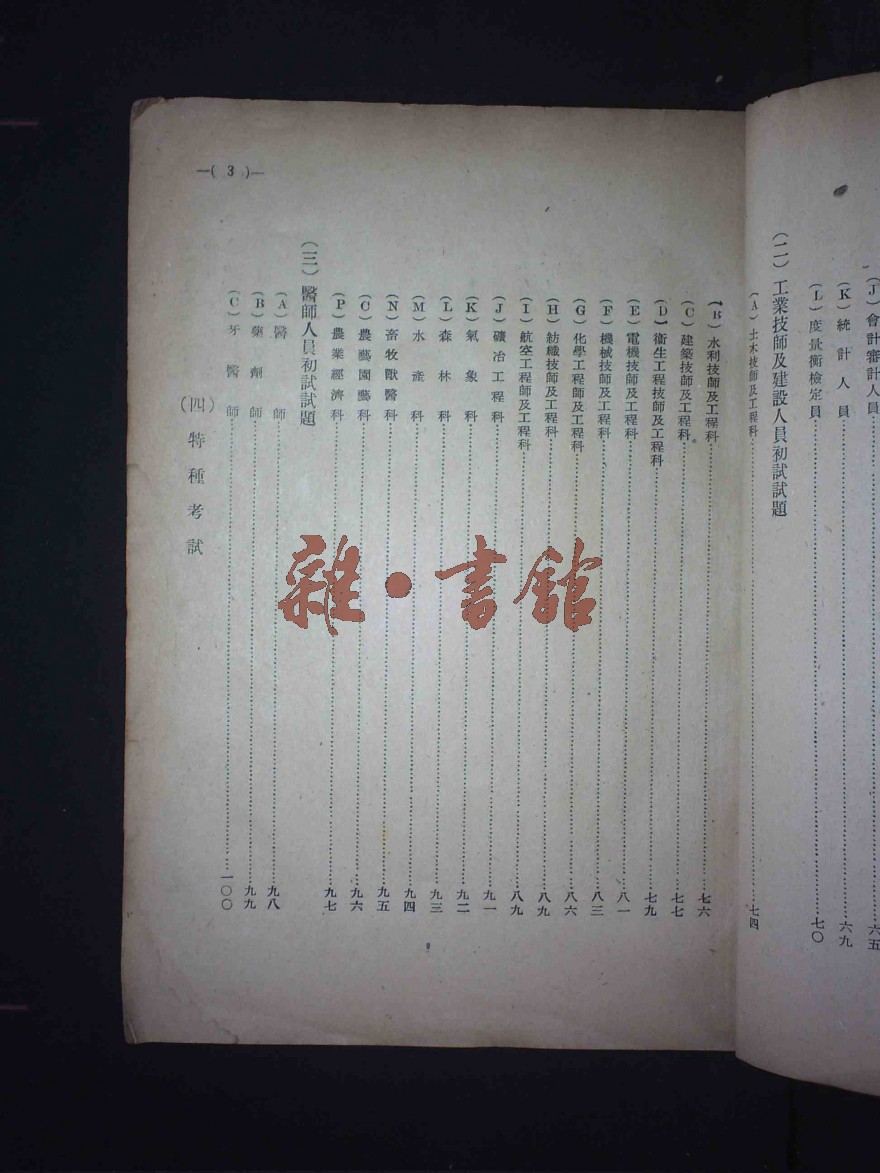 (J)會計審計人員……六五
(K)統計人員……六九
(L)度量衡檢定員……七〇
(二)工業技師及建設人員初試試題
(A)土木技師及工程科……七四
—( 3 )—
(B)水利技師及工程科……七六
(C)建築技師及工程科……七七
(D)衛生工程技師及工程科……七九
(E)電機技師及工程科……八一
(F)機械技師及工程科……八三
(G)化學工程師及工程科……八六
(H)紡織技師及工程科……八九
(I)航空工程師及工程科……八九
(J)礦冶工程科……九一
(K)氣象科……九二
(L)森林科……九三
(M)水產科……九四
(N)畜牧獸醫科……九五
(C)農藝園藝科……九六
(P)農業經濟科……九七
(三)醫師人員初試試題
(A)醫師……九八
(B)藥劑師……九九
(C)牙醫師……一〇〇
(四)特種考試
雜·書館